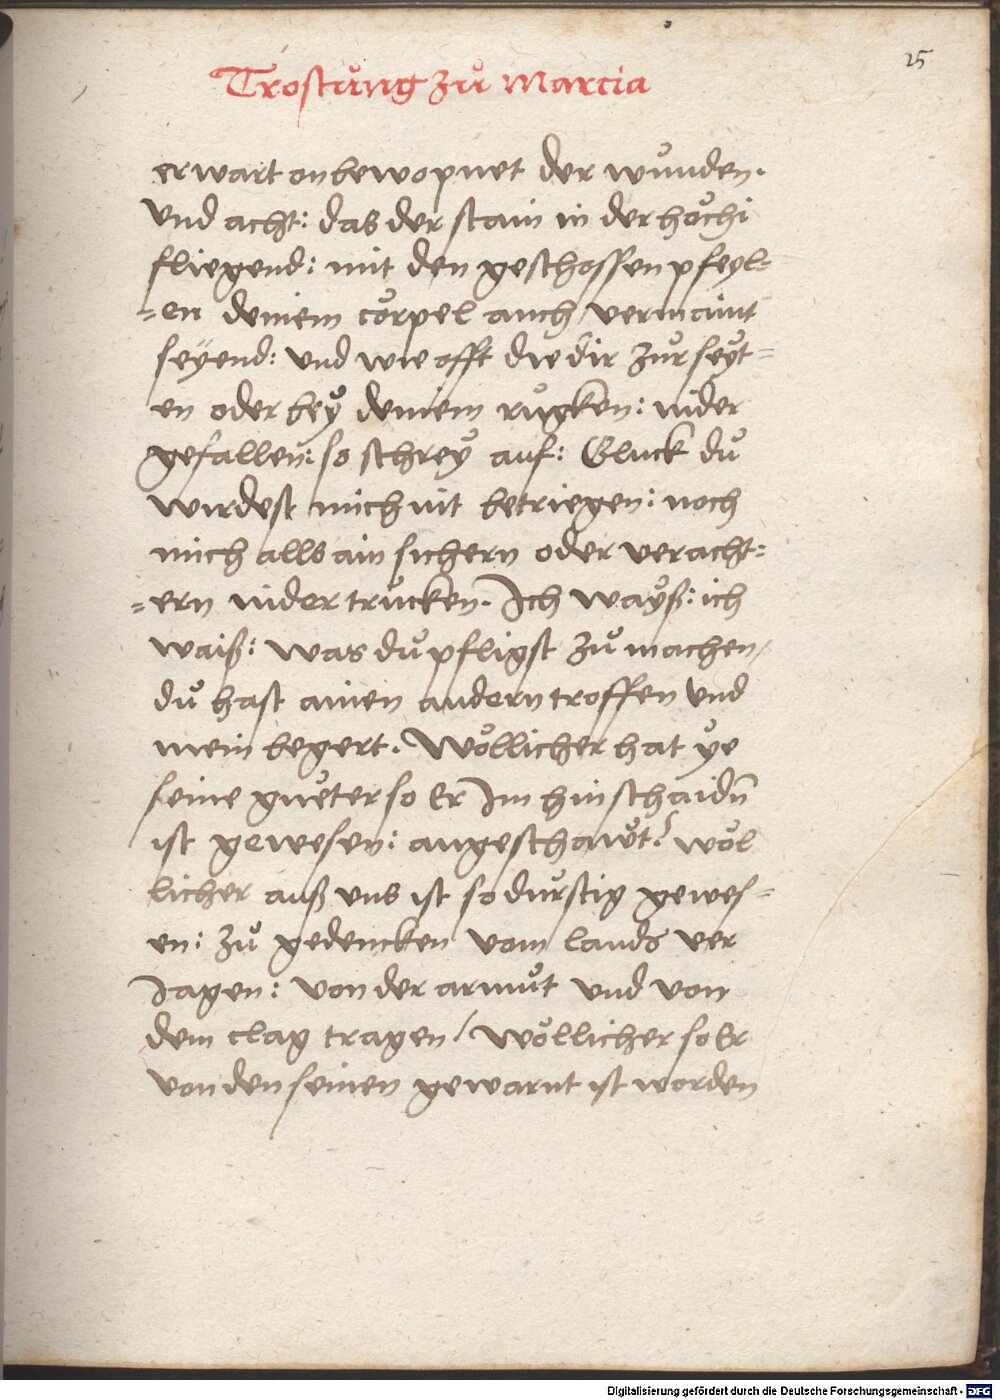 25
Trostung zů Marcia
erwart onbewopnet der wunden.
vnd acht: das der stain in der höchi
fliegend: mit den geschossen pfeyl=
=en deinem cörpel auch vermaint
seyend: vnd wie offt die dir zur seyt=
en oder bey deinem rugken: nider
gefallen: so schrey auf: Gluck du
wirdest mich nit betriegen: noch
mich alls ain sichern oder veracht=
=ern nider trucken. Ich wayß: ich
waiß: was du pfligst zů machen/
du hast ainen andern troffen vnd
mein begert. Wöllicher hat ye
seine gueter so Er Im hinschaidn̄
ist gewesen: angeschawt? wöl
licher auß vns ist so durstig gewes=
en: zů gedencken vom lands ver
Jagen: von der armůt vnd von
dem clag tragen/ Wöllicher so Er
von den seinen gewarnt ist worden
Digitalisierung gefördert durch die Deutsche Forschungsgemeinschaft - DFG